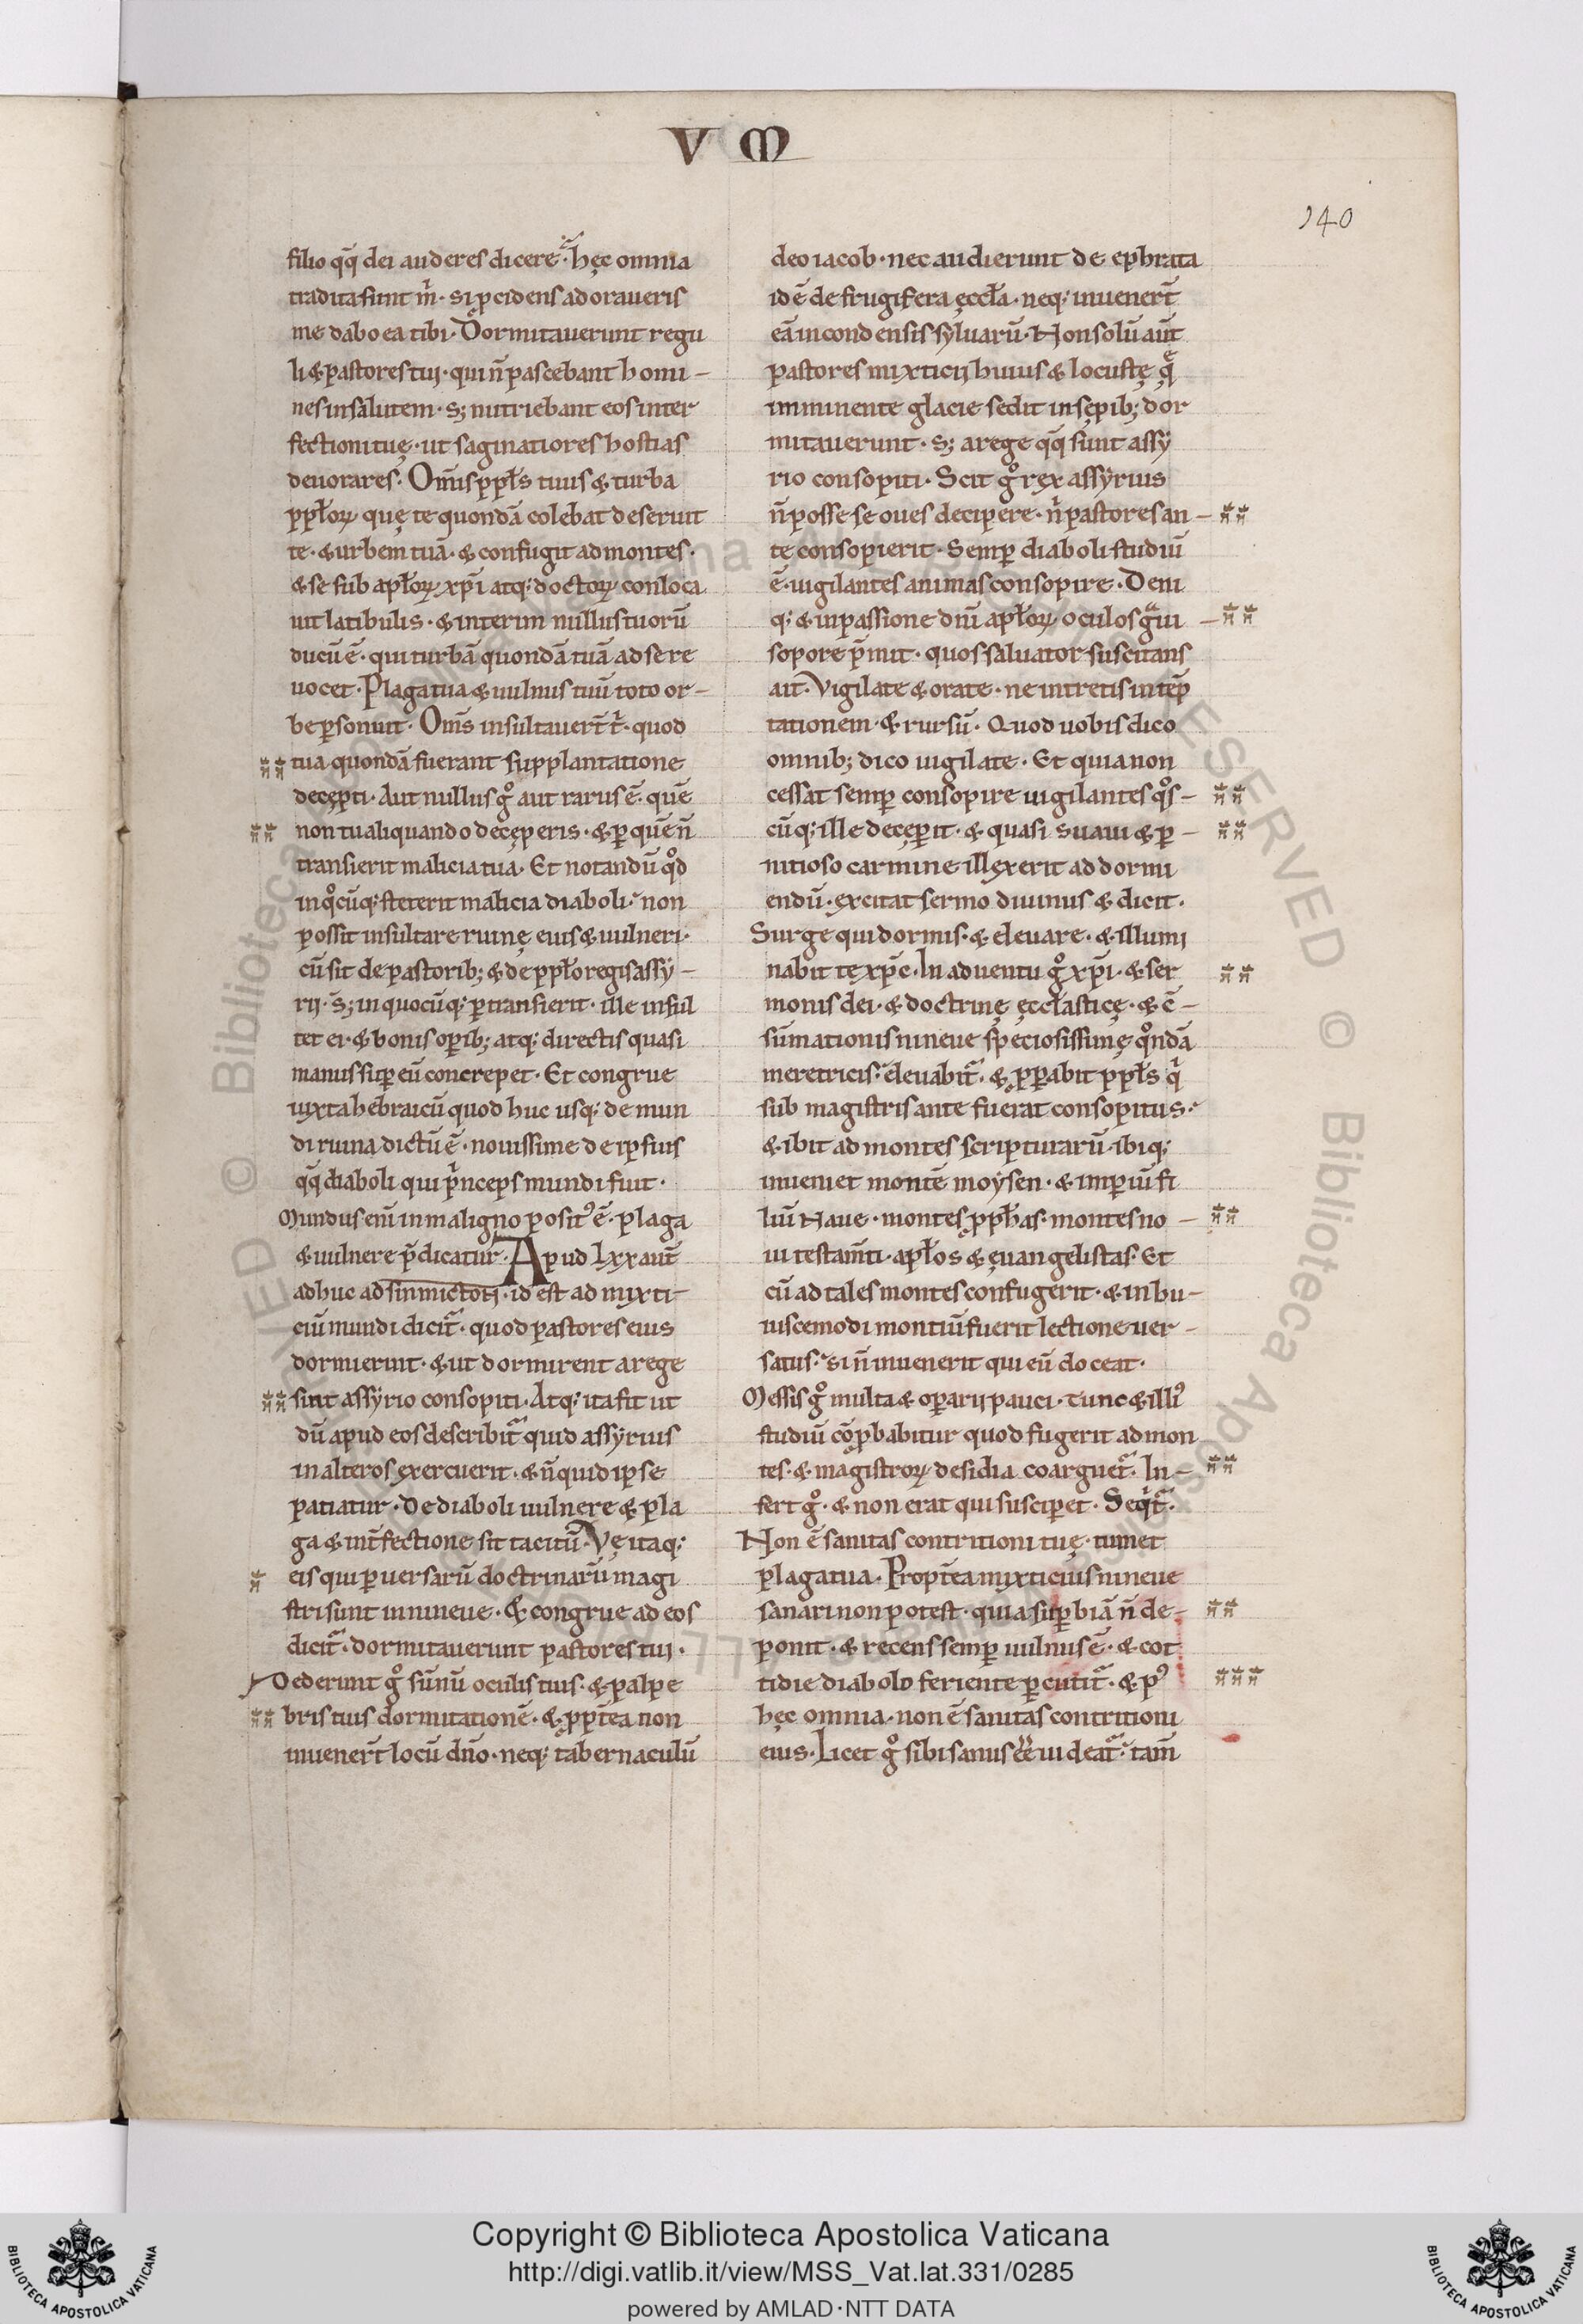 V M
140
filio qq̄ dei auderes dicere. hęc omnia
tradita sunt m̊. si p̱cidens adoraveris
me dabo ea tibi. Dormitauerunt regu
li & pastores tui. qui n̄ pascebant homi-
nes in salutem. s; nutriebant eos inter
fectioni tuę. ut saginatiores hostias
deuorares. Om̄is pp̱ls tuus & turba
pp̱loꝝ quę te quondā colebat deseruit
te. & urbem tuā. & confugit ad montes.
& se sub ap̱loꝝ xp̄i atq; doctoꝝ conloca
uit latibulis. & interim nullus tuorū
ducū ē. qui turbā quondā tuā ad se re
uocet. Plaga tua & uulnus tuū toto or-
be p̱sonuit. Om̄s insultauer̄t t̊. quod
tua quondā fuerant supplantatione
decępti. Aut nullus g̊ aut rarus ē. quē
non tu aliquando decęperis. & p̱ quē n̄
transierit malicia tua. Et notandū q̊d
in q̊cūq; steterit malicia diaboli. non
possit insultare ruinę eius & uulneri.
cū sit de pastorib; & de pp̱lo regis assy-
rij. s; in quocūq; p̱transierit. ille insul
tet ei. & bonis op̱ib; atq; directis quasi
manus sup̱ eū concrepet. Et congrue
iuxta hebraicū quod huc usq; de mun
di ruina dictū ē. nouissime de ipsius
qq̄ diaboli qui p̊nceps mundi fuit.
Mundus enī in maligno posit᾽ ē. plaga
& uulnere p̄dicatur. Apud lxx aut̄
adhuc ad sinmictoN. id est ad mixti-
ciū mundi dicit̄. quod pastores eius
dormierint. & ut dormirent a rege
sint assyrio consopiti. Atq; ita fit ut
dū apud eos describit̄ quid assyrius
in alteros exercuerit. & n̄ quid ipse
patiatur. de diaboli uulnere & pla
ga & int̄fectione sit tacitū. Vę itaq;
eis qui p̱uersarū doctrinarū magi
stri sunt in nineue. & congrue ad eos
dicit̄. dormitauerunt pastores tui.
Dederunt g̊ sūnū oculis tuis. & palpe
bris tuis dormitationē. & p̱pt̄ea non
inuener̄t locū dn̄o. neq; tabernaculū
deo iacob. nec audierunt de ephrata
id ē de frugifera ęccła. neq; inuener̄t
eā in condensis syluarū. Non solū aut̄
pastores mixticij huius & locustę q̄
imminente glacie sedit in sępib; dor
mitauerunt. s; a rege qq̄ sunt assy
rio consopiti. Scit g̊ rex assyrius
n̄ posse se oues decipere. n̊ pastores an-
te consopierit. Semp̱ diaboli studiū
ē. uigilantes animas consopire. Deni
q; & in passione dn̄i ap̱loꝝ oculos g̊ui
sopore p̄mit. quos saluator suscitans
ait. Vigilate & orate. ne intretis in tēp
tationem. & rursū. Quod uobis dico
omnib; dico uigilate. Et quia non
cessat semp̱ consopire uigilantes q̊s-
cūq; ille decęperit. & quasi suaui & p̱-
nitioso carmine illexerit ad dormi
endū. excitat sermo diuinus & dicit.
Surge qui dormis. & eleuare. & illumi
nabit te xp̄c. In aduentu g̊ xp̄i. & ser
monis dei. & doctrinę ęccłasticę. & c̄-
sūmationis nineue speciosissimę q̊ndā
meretricis. eleuabit̄. & p̱p̱abit pp̱ls q̊
sub magistris ante fuerat consopitus.
& ibit ad montes scripturarū. ibiq;
inueniet montē moysen. & imp̱iū fi
liū Naue. montes p̱phas. montes no-
ui testam̄ti. ap̱los & ęuangelistas. Et
cū ad tales montes confugerit. & in hu-
iuscemodi montiū fuerit lectione uer-
satus. si n̄ inuenerit qui eū doceat.
Messis g̊ multa & op̱arij pauci. tunc & illi᾽
studiū cōp̱babitur quod fugerit ad mon
tes. & magistroꝝ desidia coarguet̄. In-
fert g̊. & non erat qui susciperet. Seq̊t̄.
Non ē sanitas contritioni tuę. tumet
plaga tua. Propt̄ea mixticius nineue
sanari non potest. quia sup̱biā n̄ de-
ponit. & recens semp̱ uulnus ē. & cot
tidie diabolo feriente p̱cutit̄. & p᾽
hęc omnia. non ē sanitas contritioni
eius. Licet g̊ sibi sanus ēē uideat̄. tam̄
Copyright © Biblioteca Apostolica Vaticana
http://digi.vatlib.it/view/MSS_Vat.lat.331/0285
powered by AMLAD·NTT DATA
BIBLIOTECA APOSTOLICA VATICANA
BIBLIOTECA APOSTOLICA VATICANA